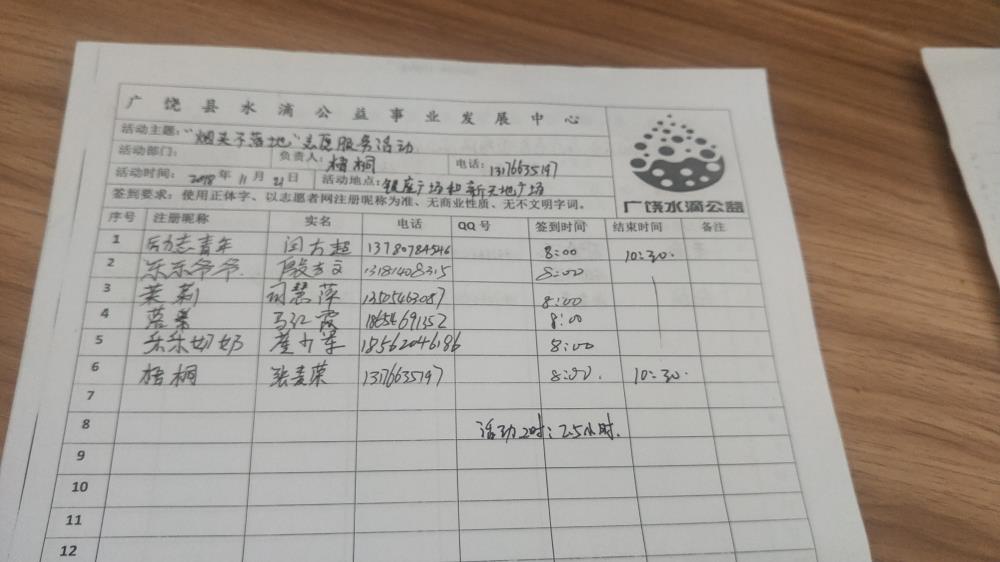 广饶县水滴公益事业发展中心
活动主题："烟头不落地"志愿服务活动
活动部门： 负责人：梧桐 电话：13176635197
活动时间：2018年11月21日 活动地点：银座广场和新天地广场
签到要求：使用正体字、以志愿者网注册昵称为准、无商业性质、无不文明字词。
广饶水滴公益
序号 注册昵称 实名 电话 QQ号 签到时间 结束时间 备注
1 励志青年 闫方超 13780784546 8:00 10:30.
2 乐乐爷爷 殷 13181408315 8:00
3 茉莉 司慧萍 13505463087 8:00
4 马红霞 18654691352 8:00
5 乐乐奶奶 18562046186 8:00
6 梧桐 张麦荣 13176635197 8:00. 10:30.
7
8 活动工时：2.5小时.
9
10
11
12